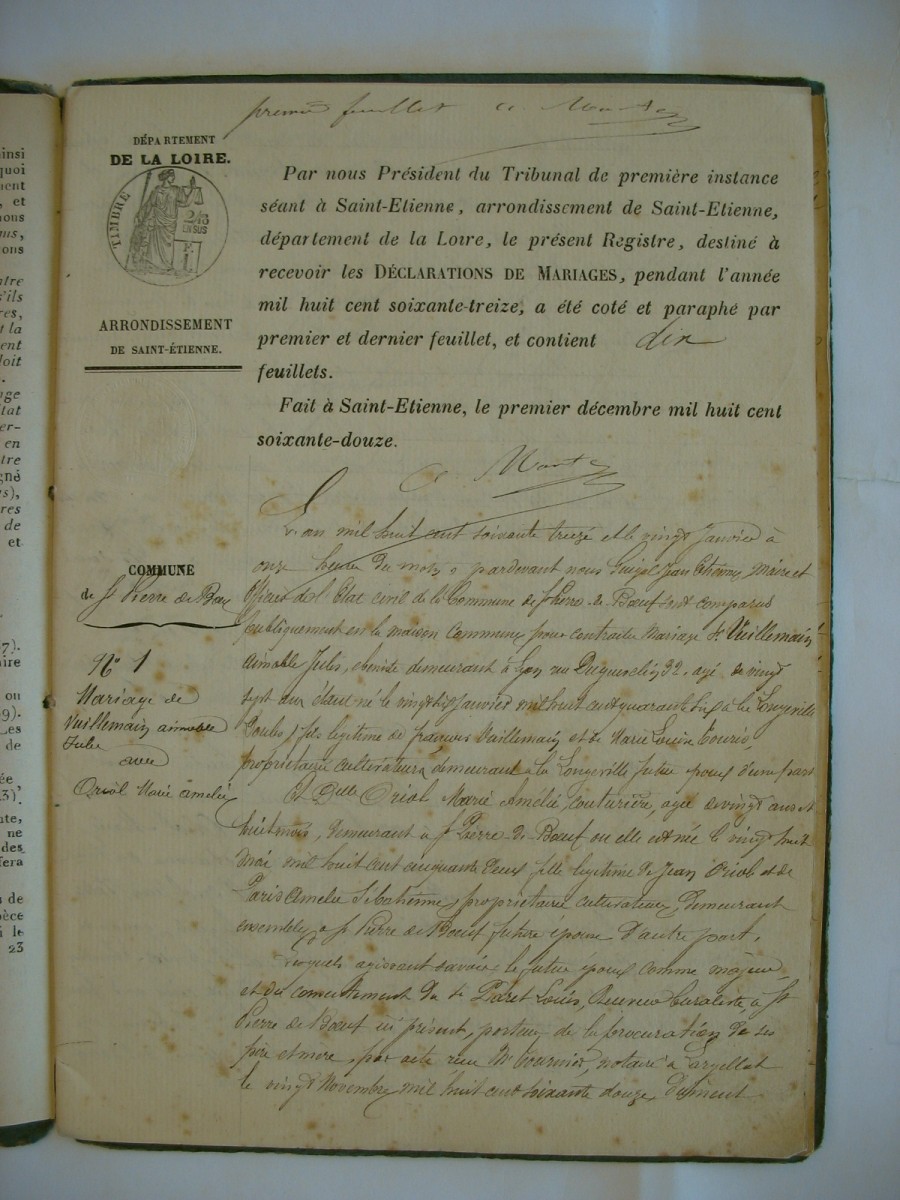 premier feuillet
DÉPARTEMENT
DE LA LOIRE.
TIMBRE
2/10
EN SUS
ARRONDISSEMENT
DE SAINT-ÉTIENNE.
Par nous Président du Tribunal de première instance
séant à Saint-Etienne, arrondissement de Saint-Etienne,
département de la Loire, le présent Registre, destiné à
recevoir les DÉCLARATIONS DE MARIAGES, pendant l'année
mil huit cent soixante-treize, a été coté et paraphé par
premier et dernier feuillet, et contient dix
feuillets.
Fait à Saint-Etienne, le premier décembre mil huit cent
soixante-douze.
COMMUNE
de St Pierre de Bœuf
N° 1
Mariage de
Vuillemain aimable
Jules
avec
Oriol Marie amelie
L'an mil huit cent soixante treize et le vingt Janvier à
onze heures du matin, pardevant nous Jean Maire et
Officier de l'Etat civil de la Commune de St Pierre de Bœuf sont comparus
publiquement en la maison commune pour contracter Mariage Vuillemain
aimable Jules, demeurant à Lyon rue Duguesclin 32, agé de vingt
sept ans étant né le vingt six janvier mil huit cent quarante six à la Longeville
Doubs, fils legitime de françois Vuillemain et de Marie Louise
propriétaires cultivateurs demeurant à la Longeville futur époux d'une part
Et Delle Oriol Marie Amélie, couturière, agée de vingt ans et
huit mois, demeurant à St Pierre de Bœuf ou elle est née le vingt huit
mil huit cent cinquante deux fille legitime de Jean Oriol et de
Paris Amelie propriétaires cultivateurs, demeurant
ensemble à St Pierre de Bœuf future épouse d'autre part,
Lesquels agissant savoir, le futur époux comme majeur
et du consentement du Sr Paret Louis, à St
Pierre de Bœuf ici présent, porteur de la procuration de ses
père et mère, par acte reçu Me notaire à
le vingt Novembre mil huit cent soixante douze, dument
ainsi
quoi
ment
, et
nons
ons
ntre
s'ils
res,
t la
ent
loit
nge
tat
er-
en
tre
gné
s),
res
de
et
7).
aire
ou
9).
Les
de
ée,
3).
ute,
ne
des
fera
s de
pèce
i le
23